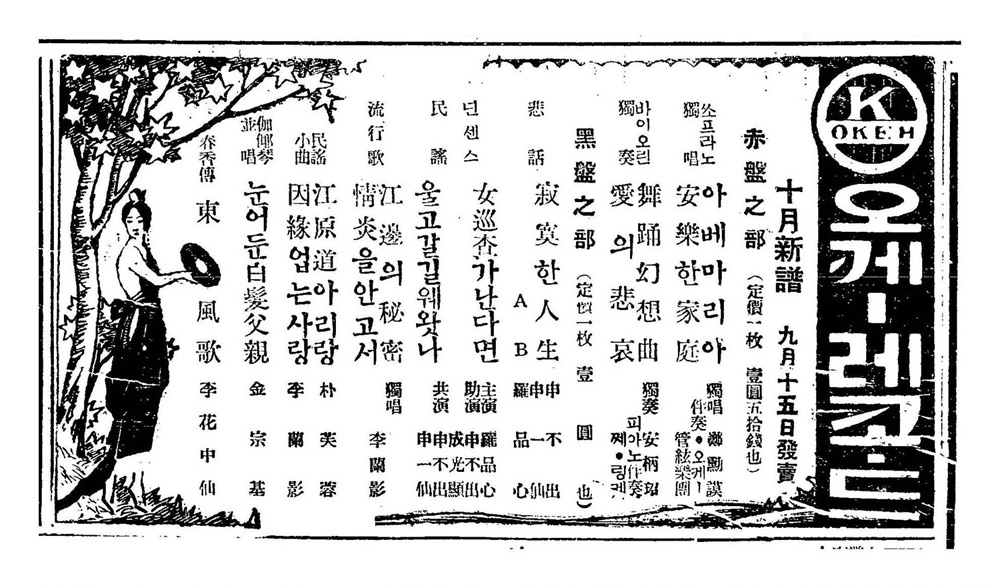 K
OKEH
오케ー레코ー드
十月新譜 九月十五日發賣
赤盤之部 (定價一枚 壹圓五拾錢也)
쏘프라노 獨唱
아베마리아
安樂한家庭
獨唱 鄭勳謨
伴奏•오케ー管絃樂團
바이오린 獨奏
舞踊幻想曲
愛의悲哀
獨奏 安柄玿
피아노伴奏 쩨•링게
黑盤之部 (定價一枚 壹圓也)
悲話 寂寞한人生 A B
申不出
申一仙
羅品心
넌센스 女巡査가난다면
主演 羅品心
助演 申不出 成光顯
民謠 울고갈길웨왓나
共演 申不出 申一仙
流行歌
江邊의秘密
情炎을안고서
獨唱 李蘭影
民謠 江原道아리랑 朴芙蓉
小曲 因緣업는사랑 李蘭影
伽倻琴並唱 눈어둔白髮父親 金宗基
春香傳 東風歌 李花中仙